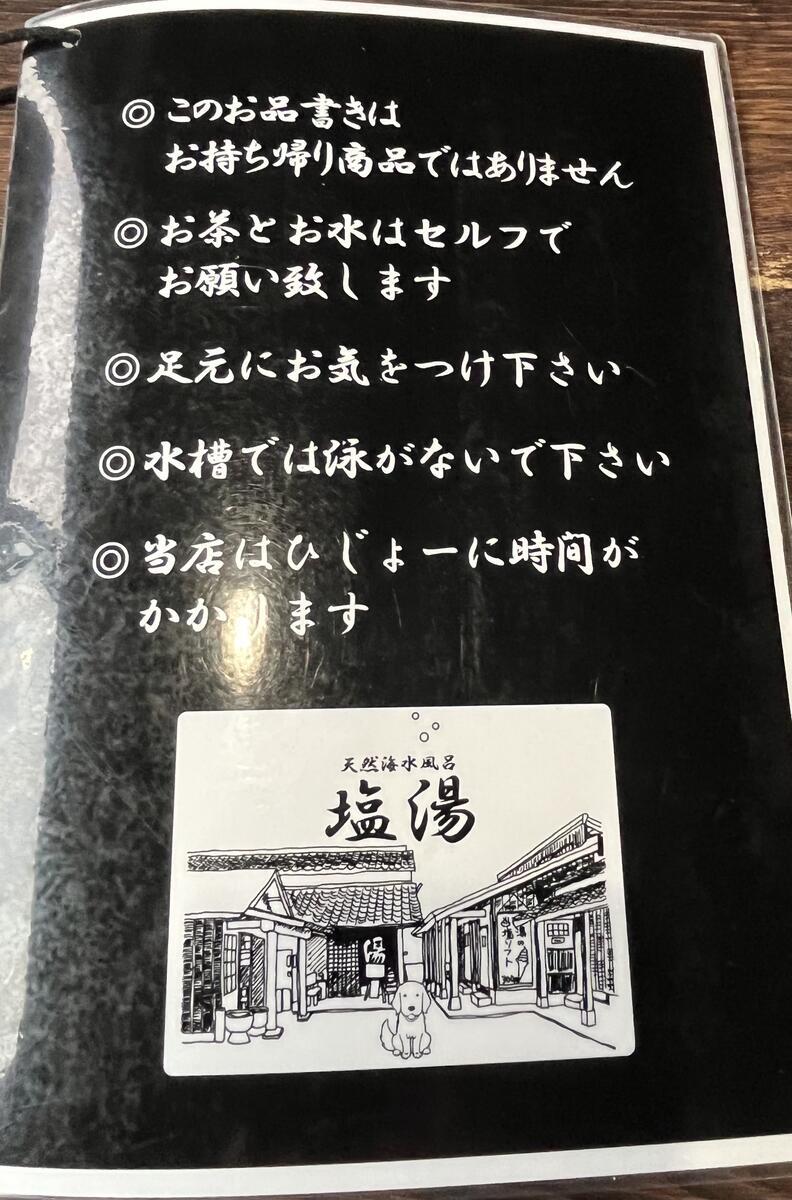 ◎このお品書きは
お持ち帰り商品ではありません
◎お茶とお水はセルフで
お願い致します
◎足元にお気をつけ下さい
◎水槽では泳がないで下さい
◎当店はひじょーに時間が
かかります
天然海水風呂
塩湯
湯
塩ソフト